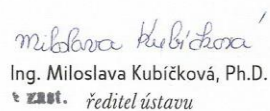 Miloslava Kubíčková
Ing. Miloslava Kubíčková, Ph.D.
v zast. ředitel ústavu